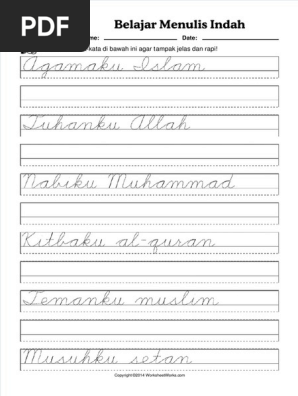 PDF
Belajar Menulis Indah
me: Date:
kata di bawah ini agar tampak jelas dan rapi!
Agamaku Islam
Tuhanku Allah
Nabiku Muhammad
Kitbaku al-quran
Temanku muslim
Musuhku setan
Copyright©2014 WorksheetWorks.com